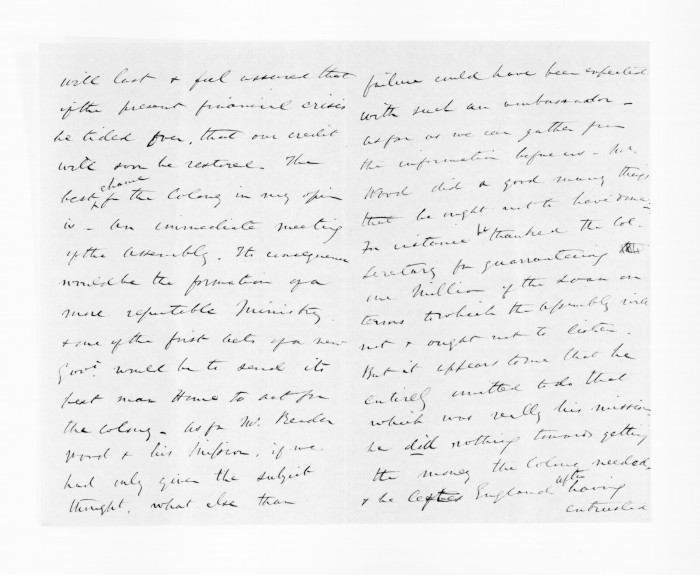 will last & feel assured that
if the present financial crises
be tided over, that our credit
will soon be restored. The
best chance for the Colony in my opin
is – an immediate meeting
of the Assembly. The consequence
would be the formation of a
more reputable Ministry.
& one of the first acts of a new
Govt. would be to send its
best man Home to act for
the colony – as for Mr. Reader
Wood & his Mission, if we
had only given the subject
thought, what else than
failure could have been expected
with such an ambassador –
as far as we can gather from
the information before us – Mr.
Wood did a good many things
that he ought not to have done –
For instance he thanked the Col.
Secretary for guaranteeing
one Million of the Loan on
terms to which the Assembly will
not & ought not to listen.
But it appears to me that he
entirely omitted to do that
which was really his mission
he did nothing towards getting
the money the Colony needed,
& he left England after having
entrusted